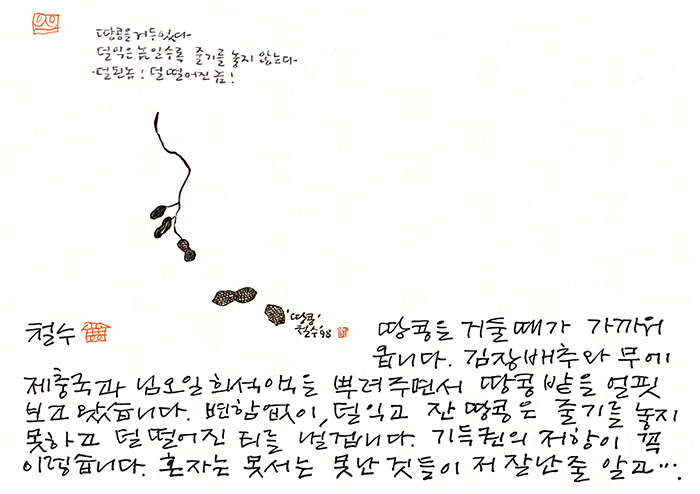 땅콩을 거두었다
덜익은 놈일수록 줄기를 놓지 않는다
덜된놈! 덜떨어진 놈!
'땅콩'
철수98
철수
땅콩을 거둘때가 가까워
옵니다. 김장배추와 무에
제충국과 님오일희석액을 뿌려주면서 땅콩밭을 얼핏
보고 왔습니다. 변함없이, 덜익고 잔 땅콩은 줄기를 놓지
못하고 덜떨어진 티를 낼겁니다. 기득권의 저항이 꼭
이렇습니다. 혼자는 못서는 못난 것들이 저 잘난줄 알고….